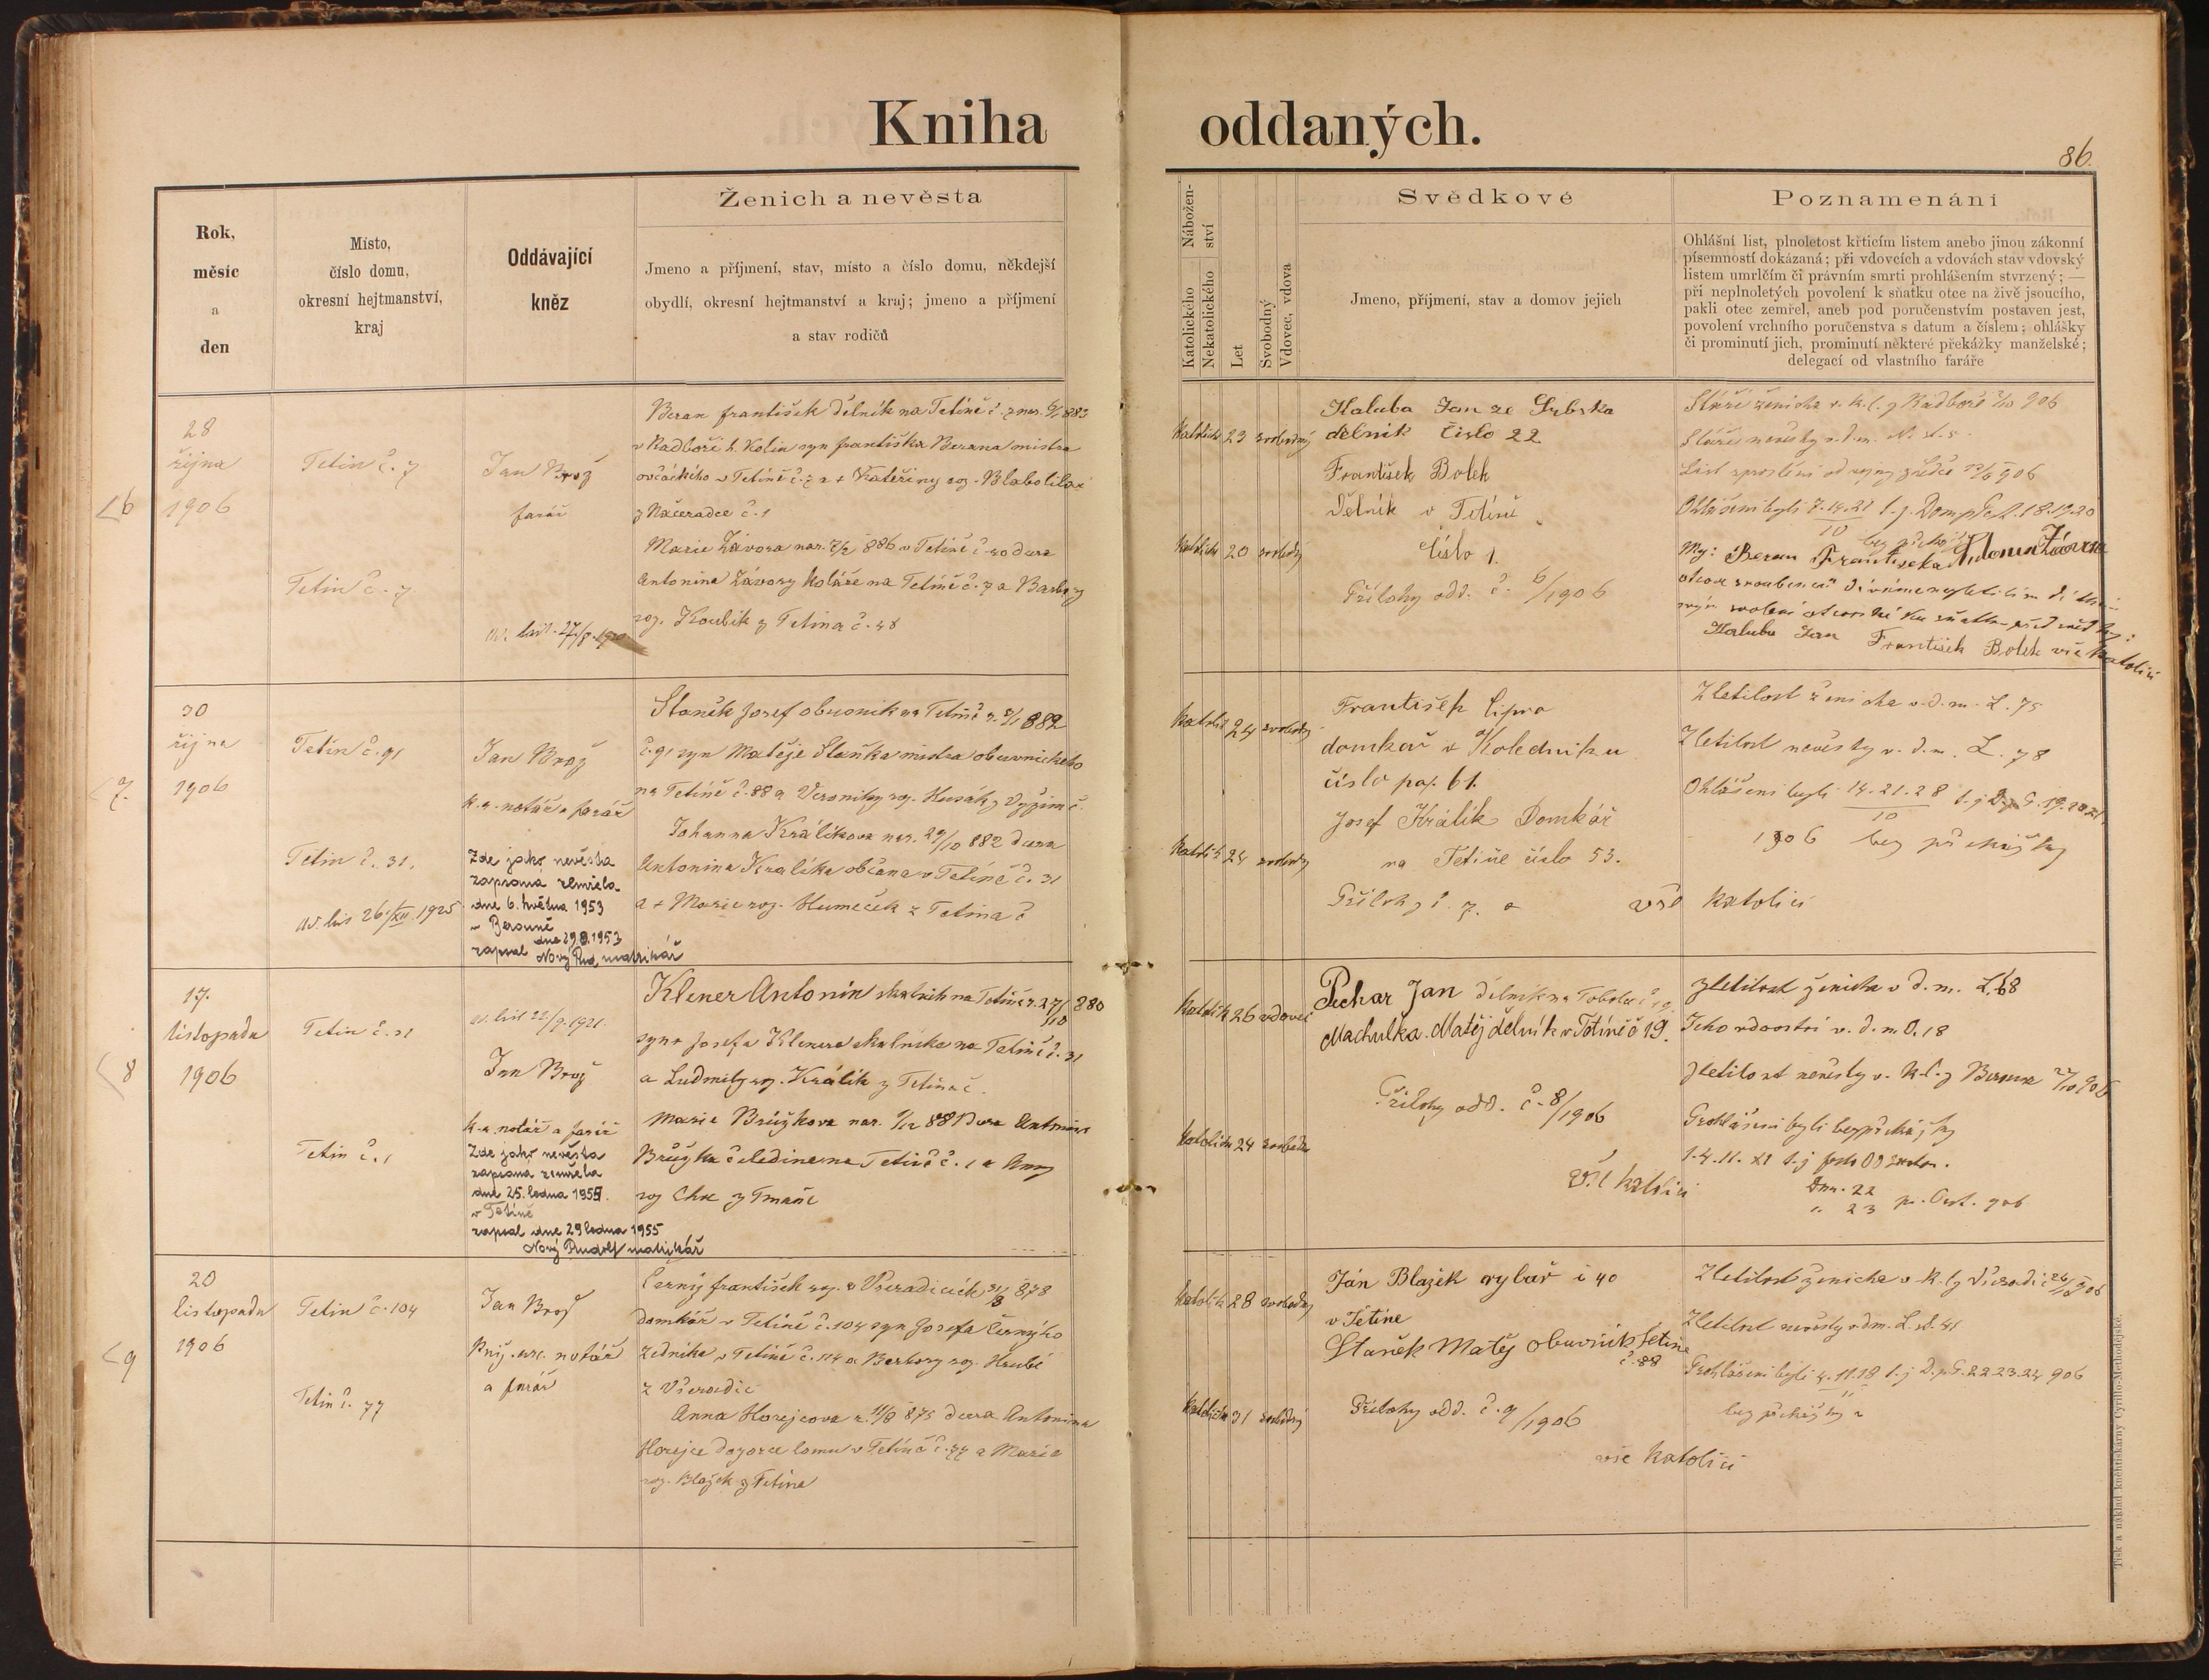 Kniha oddaných.
86.
Rok,
měsíc
a
den
Místo,
číslo domu,
okresní hejtmanství,
kraj
Oddávající
kněz
Ženich a nevěsta
Jmeno a příjmení, stav, místo a číslo domu, někdejší
obydlí, okresní hejtmanství a kraj; jmeno a příjmení
a stav rodičů
Nábožen-
ství
Katolického
Nekatolického
Let
Svobodný
Vdovec, vdova
Svědkové
Jmeno, příjmení, stav a domov jejich
Poznamenání
Ohlášní list, plnoletost křticím listem anebo jinou zákonní
písemností dokázaná; při vdovcích a vdovách stav vdovský
listem umrlčím či právním smrti prohlášením stvrzený; —
při neplnoletých povolení k sňatku otce na živě jsoucího,
pakli otec zemřel, aneb pod poručenstvím postaven jest,
povolení vrchního poručenstva s datum a číslem; ohlášky
či prominutí jich, prominutí některé překážky manželské;
delegací od vlastního faráře
6
28
října
1906
Tetín č. 7
Tetín č. 7
Jan Brož
farář
Beran František dělník na Tetíně č. 7 nar. 883
v Radboři h. Kolín syn Františka Berana mistra
ovčáckého v Tetíně č. 7 a + Kateřiny roz.
z Načeradce č. 1
Marie Závora nar. 886 v Tetíně č. 40 dcera
Antonína Závory koláře na Tetíně č. 7 a Barbory
roz. Koubik z Tetína č. 48
katolík 23 svobodný
katolick 20 svobod
Haluba Jan ze Srbska
dělník číslo 22
František Bolek
Dělník v Tetíně
číslo 1.
Přílohy odd. č. 6/1906
Stáří ženicha v. k. l. z Radboře 906
Stáří nevěsty v. d. m. N.
Ohlášeni byli 7.14.21 t. j. 18.19.20
10
My: Beran Františeka Antonin Závora
Haluba Jan František Bolek vše katolíci
7.
30
října
1906
Tetín č. 91
Tetín č. 31.
26/XII 1925
Jan Brož
k. a. notář a farář
Zde jako nevěsta
zapsaná zemřela
dne 6. května 1953
v Berouně
dne 29.8.1953
zapsal Nový Rud matrikář
Staněk Josef obuvník na Tetíně n. 882
č. 91 syn Matěje Staňka mistra obuvnického
na Tetíně č. 88 a Veroniky roz. Husák z
Johanna Králíkova nar. 29/10 882 dcera
Antonína Králíka občana v Tetíně č. 31
a + Marie roz. Humeček z Tetína č
katolík 24 svobodný
katolík 24 svobodn
František Cipra
domkář v Koledníku
číslo pop. 61.
Josef Králík Domkář
na Tetíně číslo 53.
Přílohy č. 7.
vše katolíci
Zletilost ženicha v. d. m. L. 75
Zletilost nevěsty v. d. m. L. 78
Ohlášeni byli 14.21.28 t. j. D. p. S. 19.20.21.
10
1906 bez překážky
8
17.
listopadu
1906
Tetín č. 31
Tetín č. 1
22/9.1921.
Jan Brož
k. a. notář a farář
Zde jako nevěsta
zapsaná zemřela
dne 25. ledna 1955.
v Tetíně
zapsal dne 29 ledna 1955
Nový Rudolf matrikář
Klener Antonín skalník na Tetíně n. 27/10 880
syn + Josefa Klenera skalníka na Tetíně č. 31
a Ludmily roz. Králík z Tetína č.
Marie Brůžkova nar. 1/12 881 dcera Antonína
Brůžka čeledína na Tetíně č. 1 a Anny
roz z Tmaně
katolík 26 vdovec
katolička 24 svobodna
Pechar Jan dělník na Tobolce č 19
Machulka. Matěj dělník v Tetíně č 19.
Přílohy odd. č. 8/1906
vše katolíci
Zletilost ženicha v d. m. L. 68
Jeho vdovství v. d. m O. 18
Zletilost nevěsty v. k. l. z Beroun 27/10 906
Prohlášeni byli bez překážky
1. 4. 11. t. j.
Dom. 22
" 23 p. 906
9
20
listopadu
1906
Tetín č. 104
Tetín č. 77
Jan Brož
Kníž. arc. notář
a farář
Černý František roz. v Všeradicích 31/8 878
domkář v Tetíně č. 104 syn Josefa Černýho
zedníka v Tetíně č. 114 a Barbory roz. Hrubé
z Všeradic
Anna Horejcova n. 11/8 875 dcera Antonína
Horejce dozorce lomu v Tetíně č. 77 a Marie
roz. Blažek z Tetína
katolík 28 svobodný
katolička 31 svobodný
Ján Blažek rybář č 40
v Tetíne
Staněk Matěj obuvník Tetín
č. 88
Přílohy odd. č. 9/1906
vše katolíci
Zletilost ženicha v k. l. z Všeradic 906
Zletilost nevěsty v dm. L.
Prohlášeni byli 4.11.18 t. j. D. p. S. 22 23 24 906
11
bez překážky
Tisk a náklad knihtiskárny Cyrillo-Methodějské.